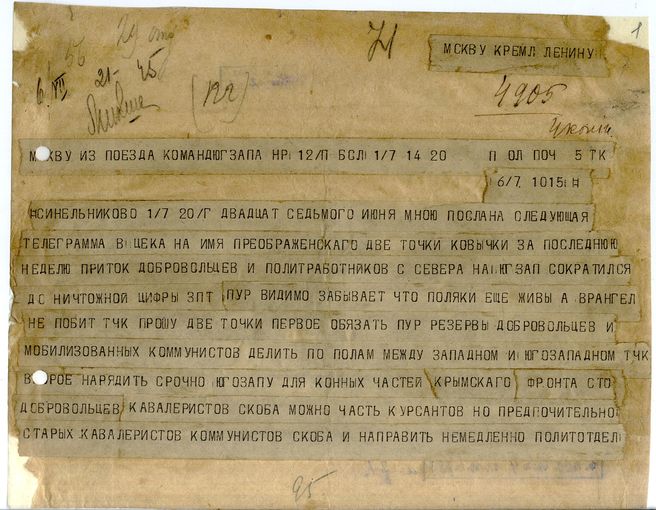 1
МСКВУ КРЕМЛ ЛЕНИНУ
6/VII 21- 45
(122)
4905
МСКВУ ИЗ ПОЕЗДА КОМАНДЮГЗАПА НР 12/П БСЛ 1/7 14 20 П ОЛ ПОЧ 5 ТК
6/7 1015 #
#СИНЕЛЬНИКОВО 1/7 20/Г ДВАДЦАТ СЕДЬМОГО ИЮНЯ МНОЮ ПОСЛАНА СЛЕДУЮЩАЯ
ТЕЛЕГРАММА В ЦЕКА НА ИМЯ ПРЕОБРАЖЕНСКАГО ДВЕ ТОЧКИ КОВЫЧКИ ЗА ПОСЛЕДНЮЮ
НЕДЕЛЮ ПРИТОК ДОБРОВОЛЬЦЕВ И ПОЛИТРАБОТНИКОВ С СЕВЕРА НА ЮГЗАП СОКРАТИЛСЯ
ДС НИЧТОЖНОЙ ЦИФРЫ ЗПТ ПУР ВИДИМО ЗАБЫВАЕТ ЧТО ПОЛЯКИ ЕЩЕ ЖИВЫ А ВРАНГЕЛ
НЕ ПОБИТ ТЧК ПРОШУ ДВЕ ТОЧКИ ПЕРВОЕ ОБЯЗАТЬ ПУР РЕЗЕРВЫ ДОБРОВОЛЬЦЕВ И
МОБИЛИЗОВАННЫХ КОММУНИСТОВ ДЕЛИТЬ ПО ПОЛАМ МЕЖДУ ЗАПАДНОМ И ЮГОЗАПАДНОМ ТЧК
ВТОРОЕ НАРЯДИТЬ СРОЧНО ЮГОЗАПУ ДЛЯ КОННЫХ ЧАСТЕЙ КРЫМСКАГО ФРОНТА СТО
ДОБРОВОЛЬЦЕВ КАВАЛЕРИСТОВ СКОБА МОЖНО ЧАСТЬ КУРСАНТОВ НО ПРЕДПОЧИТЕЛЬНО
СТАРЫХ КАВАЛЕРИСТОВ КОММУНИСТОВ СКОБА И НАПРАВИТЬ НЕМЕДЛЕННО ПОЛИТОТДЕЛ
95